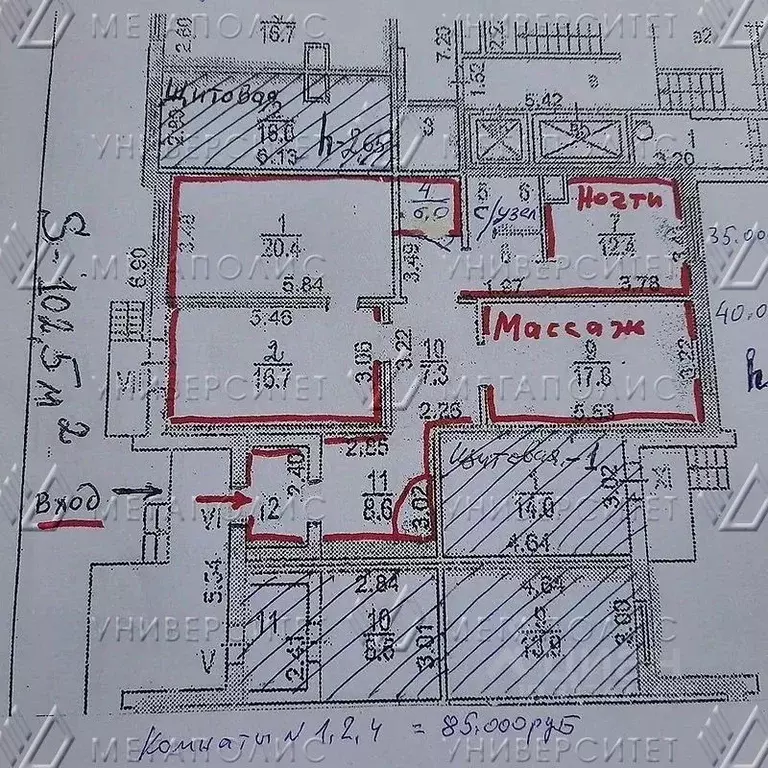 МЕГАПОЛИС
УНИВЕРСИТЕТ
2.60
16.7
7.20
1.53
5.42
3.20
Щитовая
2.90
16.0
6.13
h-2,65
4
6,0
5
6
с/узел
8
Ногти
7
12.4
3.78
1.87
35.00
S-102,5 м2
6.90
3.48
1
20.4
5.84
3.49
5.46
2
16.7
3.06
3.22
10
7.3
Массаж
9
17.8
5.63
40.0
2.26
VII
Вход
VI
12
2.40
2.85
11
8.6
3.02
Щитовая-1
1
14.0
3.02
4.64
5.54
V
11
2.41
2.84
10
3.01
4.64
3.00
Комнаты N 1,2,4 = 85.000 руб